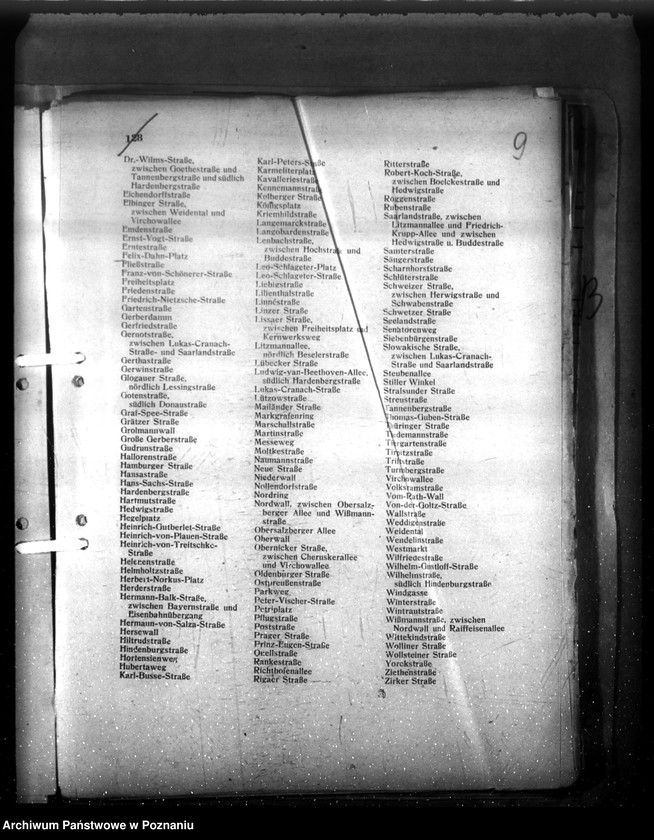 128
9
Dr.-Wilms-Straße,
zwischen Goethestraße und
Tannenbergstraße und südlich
Hardenbergstraße
Eichendorffstraße
Elbinger Straße,
zwischen Weidental und
Virchowallee
Emdenstraße
Ernst-Vogt-Straße
Erntestraße
Felix-Dahn-Platz
Fließstraße
Franz-von-Schönerer-Straße
Freiheitsplatz
Friedenstraße
Friedrich-Nietzsche-Straße
Gartenstraße
Gerberdamm
Gerfriedstraße
Gernotstraße,
zwischen Lukas-Cranach-
Straße- und Saarlandstraße
Gerthastraße
Gerwinstraße
Glogauer Straße,
nördlich Lessingstraße
Gotenstraße,
südlich Donaustraße
Graf-Spee-Straße
Grätzer Straße
Grolmannwall
Große Gerberstraße
Gudrunstraße
Hallorenstraße
Hamburger Straße
Hansastraße
Hans-Sachs-Straße
Hardenbergstraße
Hartmutstraße
Hedwigstraße
Hegelplatz
Heinrich-Gutberlet-Straße
Heinrich-von-Plauen-Straße
Heinrich-von-Treitschke-
Straße
Helenenstraße
Helmholtzstraße
Herbert-Norkus-Platz
Herderstraße
Hermann-Balk-Straße,
zwischen Bayernstraße und
Eisenbahnübergang
Hermann-von-Salza-Straße
Hersewall
Hiltrudstraße
Hindenburgstraße
Hortensienweg
Hubertaweg
Karl-Busse-Straße
Karl-Peters-Straße
Karmeliterplatz
Kavalleriestraße
Kennemannstraße
Kolberger Straße
Königsplatz
Kriemhildstraße
Langemarckstraße
Langobardenstraße
Lenbachstraße,
zwischen Hochstraße und
Buddestraße
Leo-Schlageter-Platz
Leo-Schlageter-Straße
Liebigstraße
Lilienthalstraße
Linnéstraße
Linzer Straße
Lissaer Straße,
zwischen Freiheitsplatz und
Kernwerksweg
Litzmannallee,
nördlich Beselerstraße
Lübecker Straße
Ludwig-van-Beethoven-Allee,
südlich Hardenbergstraße
Lukas-Cranach-Straße
Lützowstraße
Mailänder Straße
Markgrafenring
Marschallstraße
Martinstraße
Messeweg
Moltkestraße
Naumannstraße
Neue Straße
Niederwall
Nollendorfstraße
Nordring
Nordwall, zwischen Obersalz-
berger Allee und Wißmann-
straße
Obersalzberger Allee
Oberwall
Obernicker Straße,
zwischen Cheruskerallee
und Virchowallee
Oldenburger Straße
Ostpreußenstraße
Parkweg
Peter-Vischer-Straße
Petriplatz
Pflugstraße
Poststraße
Prager Straße
Prinz-Eugen-Straße
Ocellstraße
Rankestraße
Richthofenallee
Rigaer Straße
Ritterstraße
Robert-Koch-Straße,
zwischen Boelckestraße und
Hedwigstraße
Roggenstraße
Rubenstraße
Saarlandstraße, zwischen
Litzmannallee und Friedrich-
Krupp-Allee und zwischen
Hedwigstraße u. Buddestraße
Samterstraße
Sängerstraße
Scharnhorststraße
Schlüterstraße
Schweizer Straße,
zwischen Herwigstraße und
Schwabenstraße
Schwetzer Straße
Seelandstraße
Senatorenweg
Siebenbürgenstraße
Slowakische Straße,
zwischen Lukas-Cranach-
Straße und Saarlandstraße
Steubenallee
Stiller Winkel
Stralsunder Straße
Streustraße
Tannenbergstraße
Thomas-Guben-Straße
Thüringer Straße
Tiedemannstraße
Tiergartenstraße
Tirpitzstraße
Triftstraße
Turmbergstraße
Virchowallee
Volkstamstraße
Vom-Rath-Wall
Von-der-Goltz-Straße
Wallstraße
Weddigenstraße
Weidental
Wendelinstraße
Westmarkt
Wilfriedestraße
Wilhelm-Gustloff-Straße
Wilhelmstraße,
südlich Hindenburgstraße
Windgasse
Winterstraße
Wintrautstraße
Wißmannstraße, zwischen
Nordwall und Raiffeisenallee
Wittekindstraße
Wolliner Straße
Wollsteiner Straße
Yorckstraße
Ziethenstraße
Zirker Straße
Archiwum Państwowe w Poznaniu